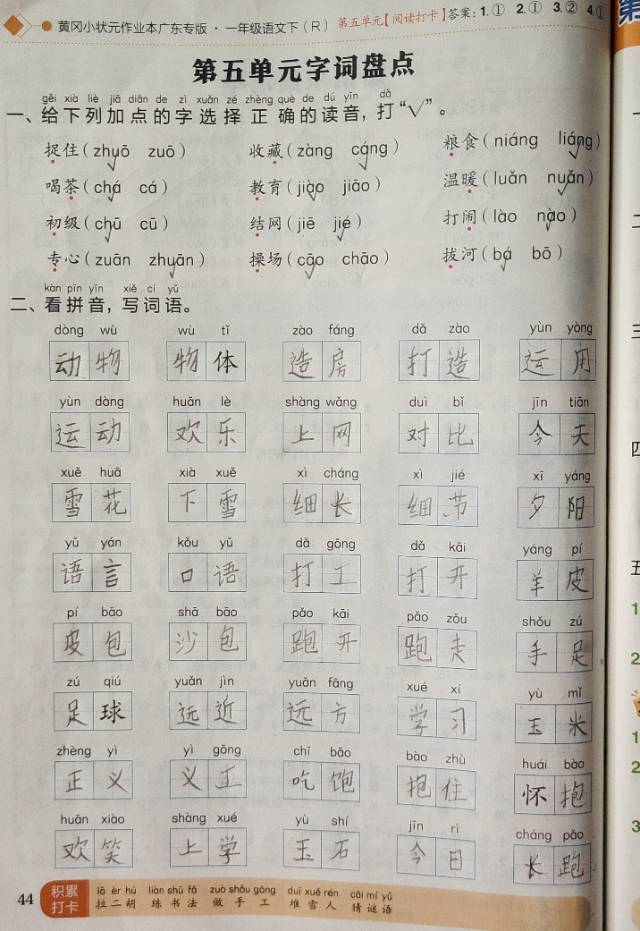 黄冈小状元作业本广东专版·一年级语文下（R） 第五单元【阅读打卡】答案：1.① 2.① 3.② 4.①
第五单元字词盘点
gěi xià liè jiā diǎn de zì xuǎn zé zhèng què de dú yīn dǎ
一、给下列加点的字选择正确的读音，打“√”。
捉住（zhuō zuō） 收藏（zàng cáng） 粮食（niáng liáng）
喝茶（chá cá） 教育（jiào jiāo） 温暖（luǎn nuǎn）
初级（chū cū） 结网（jiē jié） 打闹（lào nào）
专心（zuān zhuān） 操场（cāo chāo） 拔河（bá bō）
kàn pīn yīn xiě cí yǔ
二、看拼音，写词语。
dòng wù wù tǐ zào fáng dǎ zào yùn yòng
动物 物体 造房 打造 运用
yùn dòng huān lè shàng wǎng duì bǐ jīn tiān
运动 欢乐 上网 对比 今天
xuě huā xià xuě xì cháng xì jié xī yáng
雪花 下雪 细长 细节 夕阳
yǔ yán kǒu yǔ dǎ gōng dǎ kāi yáng pí
语言 口语 打工 打开 羊皮
pí bāo shā bāo pǎo kāi pǎo zǒu shǒu zú
皮包 沙包 跑开 跑走 手足
zú qiú yuǎn jìn yuǎn fāng xué xí yù mǐ
足球 远近 远方 学习 玉米
zhèng yì yì gōng chī bǎo bào zhù huái bào
正义 义工 吃饱 抱住 怀抱
huān xiào shàng xué yù shí jīn rì cháng pǎo
欢笑 上学 玉石 今日 长跑
44 积累打卡
lā èr hú liàn shū fǎ zuò shǒu gōng duī xuě rén cāi mí yǔ
拉二胡 练书法 做手工 堆雪人 猜谜语